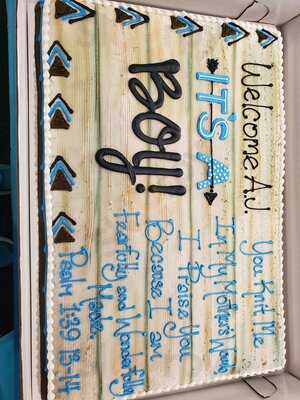 Welcome A.J.
IT'S A
Boy!
You Knit Me
In My Mother's Womb
I Praise You
Because I am
Fearfully and Wonderfully
Made
Psalm 1:39 13-14